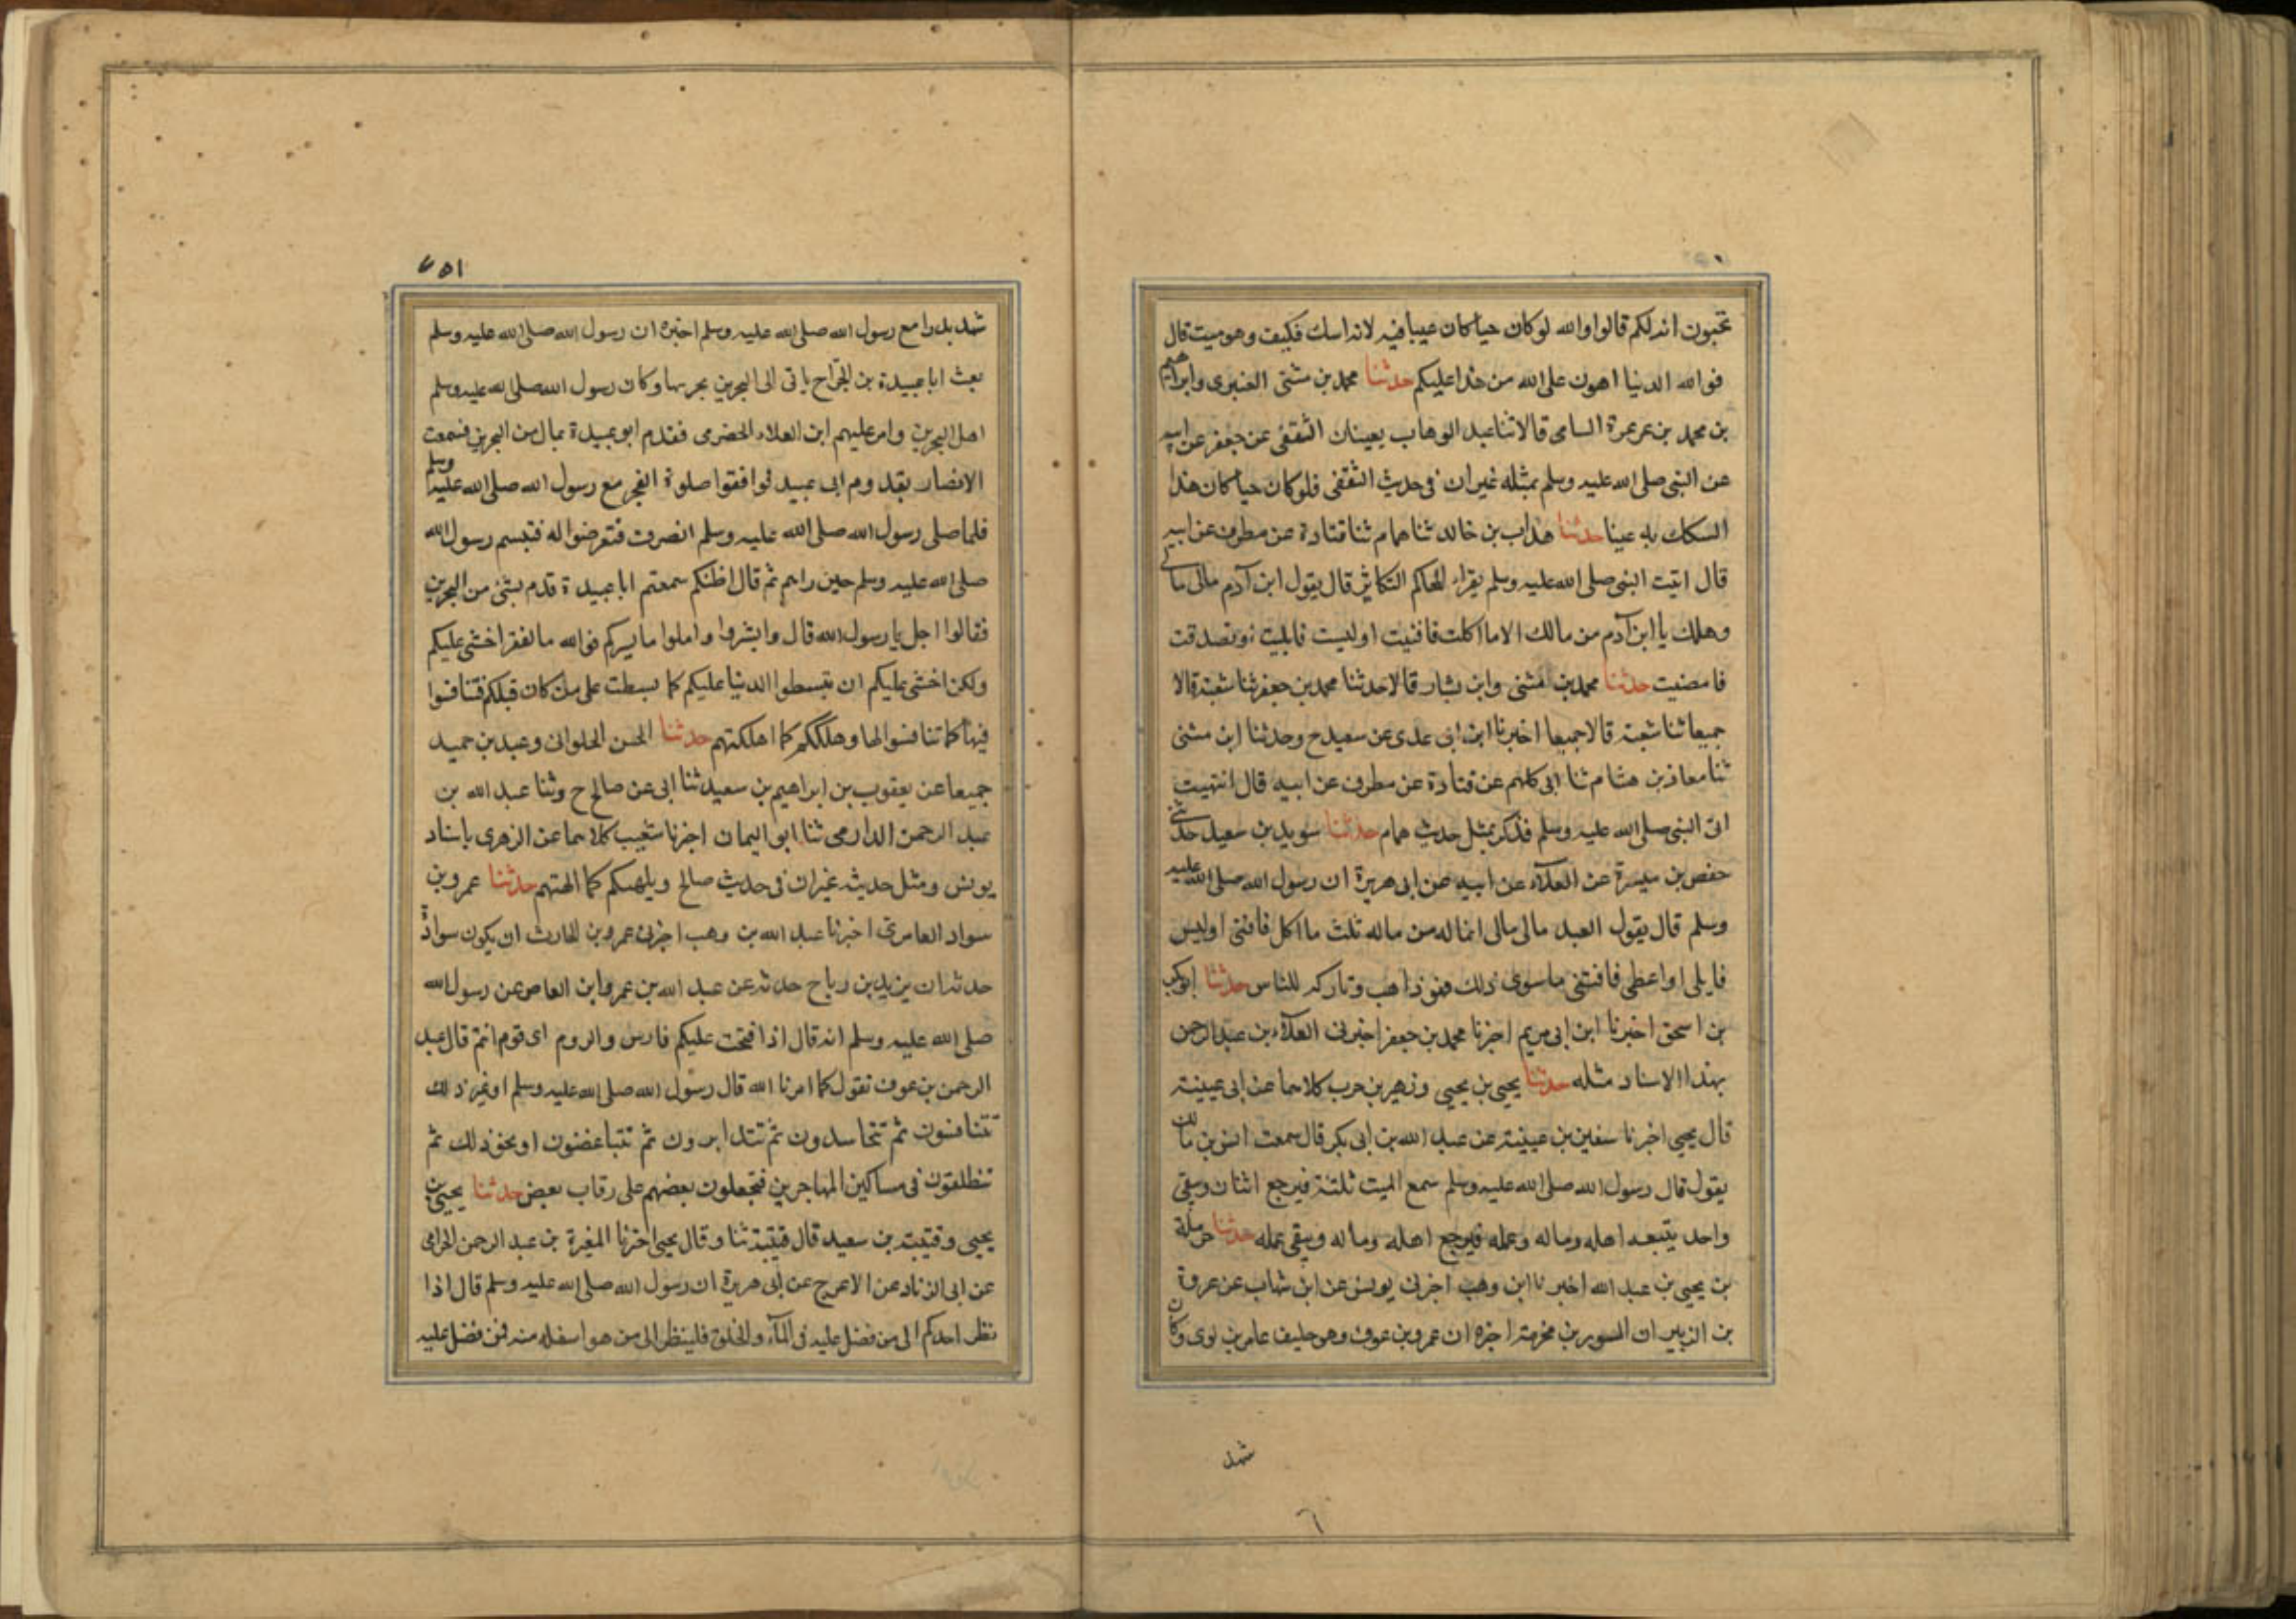 تحبون انه لكم قالوا والله لو كان حيا كان عيبا فيه لانه اسك فكيف وهو ميت قال
فوالله الدنيا اهون على الله من هذا عليكم حدثنا محمد بن مثنى العنبرى وابراهيم
بن محمد بن عرعرة السامى قالا ثنا عبد الوهاب يعينان الثقفى عن جعفر عن ابيه
عن النبى صلى الله عليه وسلم بمثله غير ان فى حديث الثقفى فلو كان حيا كان هذا
السكك به عينا حدثنا هداب بن خالد ثنا همام ثنا قتادة عن مطرف عن ابيه
قال اتيت النبى صلى الله عليه وسلم يقراء الهاكم التكاثر قال يقول ابن آدم مالى مالى
وهلك يا ابن آدم من مالك الا ما اكلت فافنيت او لبست فابليت او تصدقت
فامضيت حدثنا محمد بن مثنى وابن بشار قالا حدثنا محمد بن جعفر ثنا شعبة قالا
جميعا ثنا شعبة قالا جميعا اخبرنا ابن ابى عدى عن سعيد ح وحدثنا ابن مثنى
ثنا معاذ بن هشام ثنا ابى كلهم عن قتادة عن مطرف عن ابيه قال انتهيت
الى النبى صلى الله عليه وسلم فذكر بمثل حديث همام حدثنا سويد بن سعيد حدثنى
حفص بن ميسرة عن العلاء عن ابيه عن ابى هريرة ان رسول الله صلى الله عليه
وسلم قال يقول العبد مالى مالى انما له من ماله ثلث ما اكل فافنى او لبس
فابلى او اعطى فاقتنى ما سوى ذلك فهو ذاهب وتاركه للناس حدثنا ابوبكر
بن اسحق اخبرنا ابن ابى مريم اخبرنا محمد بن جعفر اخبرنى العلاء بن عبد الرحمن
بهذا الاسناد مثله حدثنا يحيى بن يحيى وزهير بن حرب كلاهما عن ابى عيينة
قال يحيى اخبرنا سفين بن عيينة عن عبد الله بن ابى بكر قال سمعت انس بن مالك
يقول قال رسول الله صلى الله عليه وسلم سمع الميت ثلثة فيرجع اثنان ويبقى
واحد يتبعه اهله وماله وعمله فيرجع اهله وماله ويبقى عمله حدثنا حرملة
بن يحيى بن عبد الله اخبرنا ابن وهب اخبرنى يونس عن ابن شهاب عن عروة
بن الزبير ان المسور بن مخرمة اخبره ان عمرو بن عوف وهو حليف عامر بن لوى وكان
شهد
٦
٧٥١
شهد بدرا مع رسول الله صلى الله عليه وسلم اخبره ان رسول الله صلى الله عليه وسلم
بعث ابا عبيدة بن الجراح ياتى الى البحرين بجزيتها وكان رسول الله صلى الله عليه وسلم
اهل البحرين وامر عليهم ابن العلاء الحضرمى فقدم ابو عبيدة بمال من البحرين فسمعت
الانصار بقدوم ابى عبيد فوافقوا صلوة الفجر مع رسول الله صلى الله عليه وسلم
فلما صلى رسول الله صلى الله عليه وسلم انصرف فتعرضوا له فتبسم رسول الله
صلى الله عليه وسلم حين راهم ثم قال اظنكم سمعتم ابا عبيدة قدم بشئ من البحرين
فقالوا اجل يا رسول الله قال وابشروا واملوا ما يسركم فوالله ما لفقر اخشى عليكم
ولكن اخشى عليكم ان تبسطوا الدنيا عليكم كما بسطت على من كان قبلكم فتنافسوا
فيها كما تنافسوالها وهلككم كما اهلكتهم حدثنا الحسن الحلوانى وعبد بن حميد
جميعا عن يعقوب بن ابراهيم بن سعيد ثنا ابى عن صالح ح وثنا عبد الله بن
عبد الرحمن الدارمى ثنا ابو اليمان اخبرنا شعيب كلاهما عن الزهرى باسناد
يونس ومثل حديثه غير ان فى حديث صالح ويلهيكم كما الهتهم حدثنا عمرو بن
سواد العامرى اخبرنا عبد الله بن وهب اخبرنى عمرو بن الحارث ان بكون سوادة
حدثه ان يزيد بن رباح حدثه عن عبد الله بن عمرو ابن العاص عن رسول الله
صلى الله عليه وسلم انه قال اذا فتحت عليكم فارس والروم اى قوم انتم قال عبد
الرحمن بن عوف نقول كما امرنا الله قال رسول الله صلى الله عليه وسلم او غير ذلك
تتنافسون ثم تتحاسدون ثم تتدابرون ثم تتباغضون او نحو ذلك ثم
تنطلقون فى مساكين المهاجرين فتجعلون بعضهم على رقاب بعض حدثنا يحيى بن
يحيى وقتيبة بن سعيد قال قتيبة ثنا وقال يحيى اخبرنا المغيرة بن عبد الرحمن الحزامى
عن ابى الزناد عن الاعرج عن ابى هريرة ان رسول الله صلى الله عليه وسلم قال اذا
نظر احدكم الى من فضل عليه فى المآء والخلق فلينظر الى من هو اسفل منه فمن فضل عليه